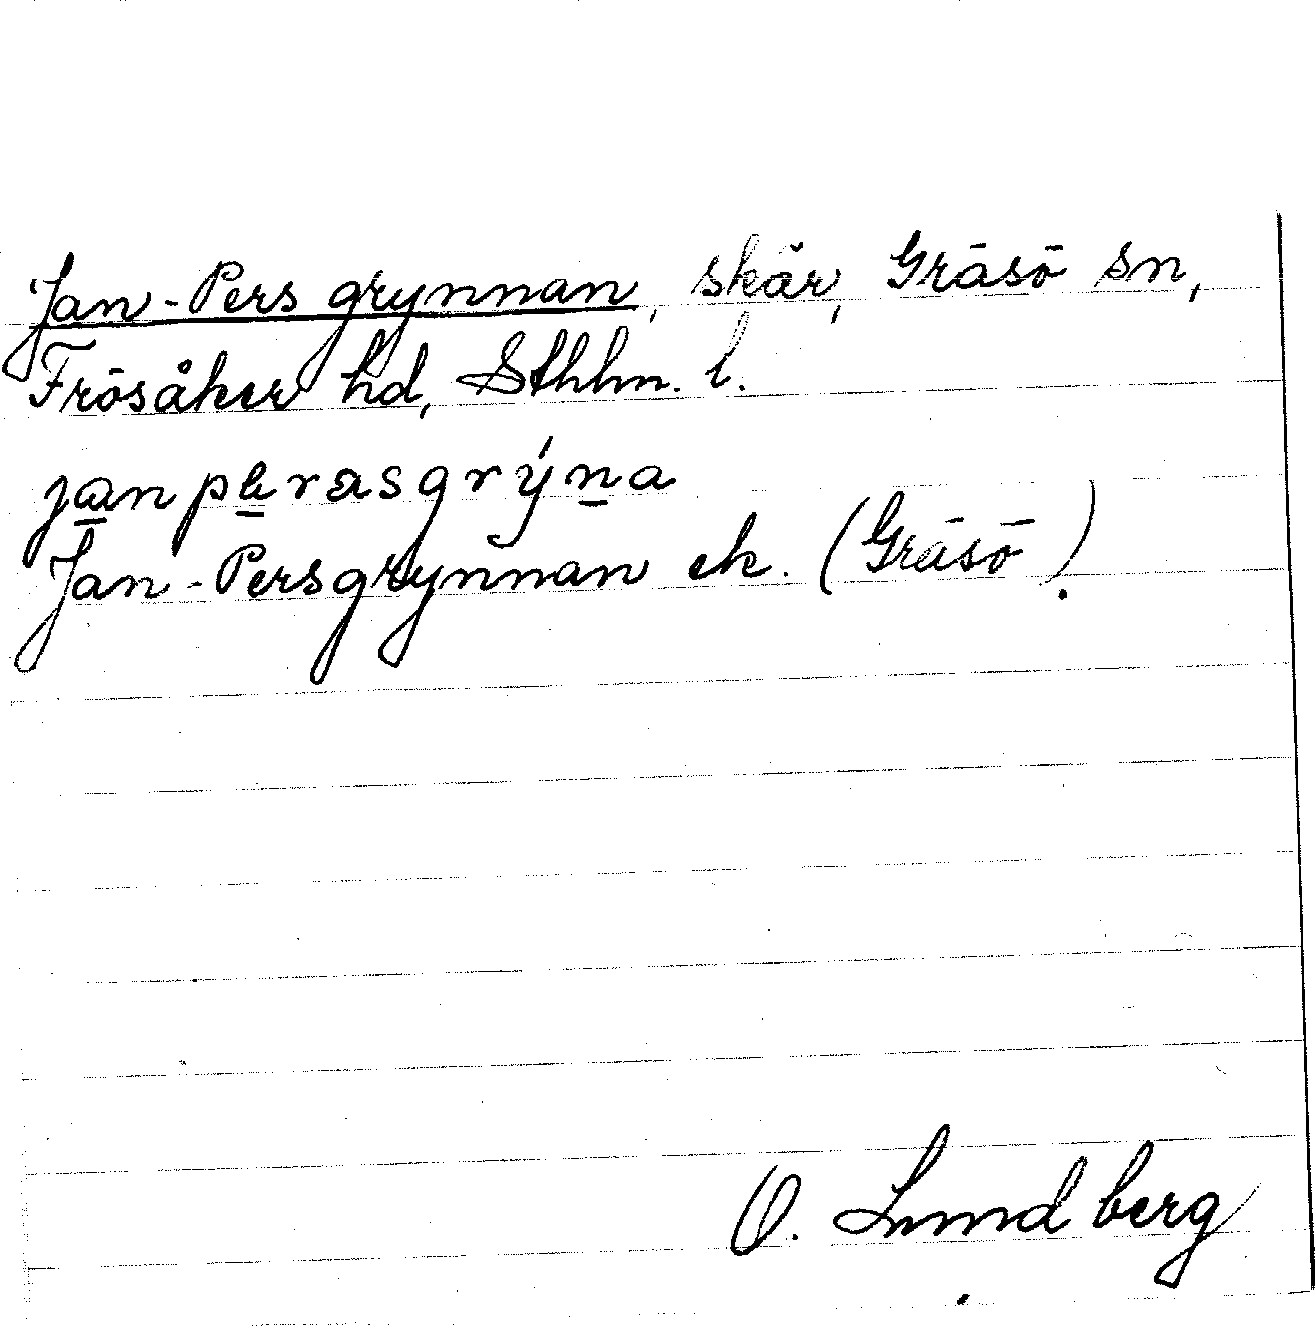 Jan-Pers grynnan, skär, Gräsö sn,
Frösåker hd, Sthlm. l.
janpẹrasgrýna
Jan-Persgrynnan ek. (Gräsö).
O. Lundberg